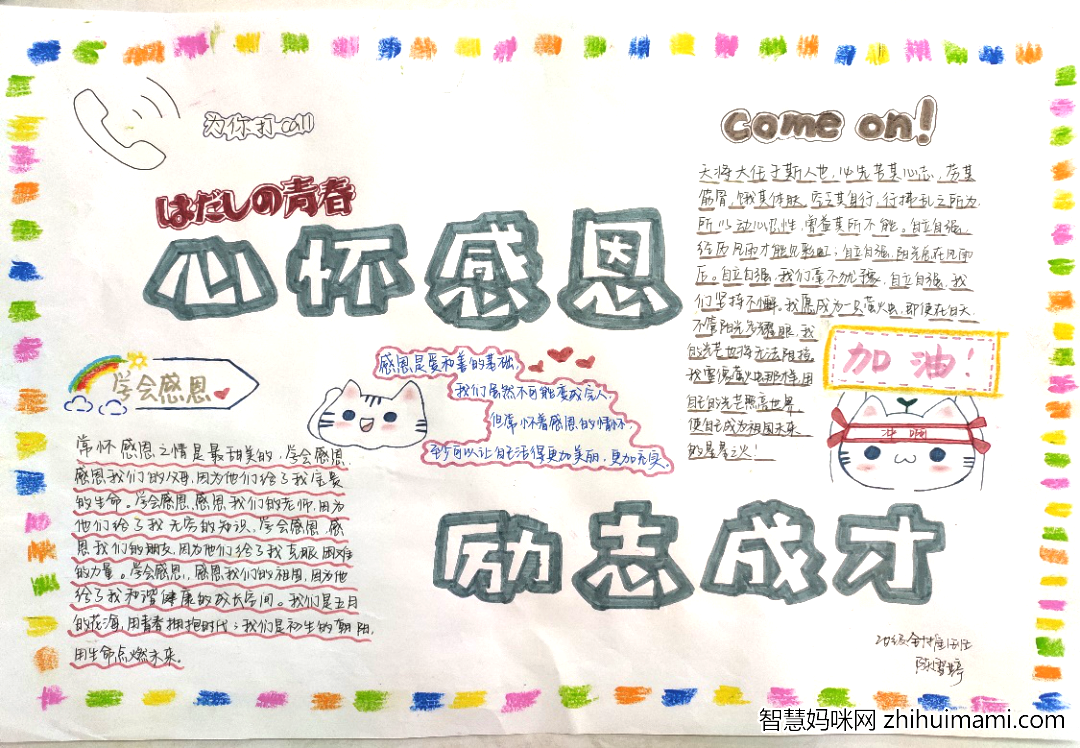 为你打call
はだしの青春
心怀感恩
学会感恩
常怀感恩之情是最甜美的,学会感恩,
感恩我们的父母,因为他们给了我宝贵
的生命。学会感恩,感恩我们的老师,因为
他们给了我无穷的知识、学会感恩,感
恩我们的朋友,因为他们给了我克服困难
的力量。学会感恩,感恩我们的祖国,因为他
给了我和谐健康的成长空间。我们是五月
的花海,用青春拥抱时代;我们是初生的朝阳,
用生命点燃未来。
感恩是爱和善的基础,
我们虽然不可能变成完人
但常怀着感恩的情怀,
至少可以让自己活得更加美丽,更加充实。
come on!
天将大任于斯人也,必先苦其心志,劳其
筋骨,饿其体肤,空乏其身行,行拂乱之所为,
所以动心忍性,曾益其所不能。自立自强,
经历风雨才能见彩虹;自立自强,阳光总在风雨
后。自立自强,我们毫不犹豫,自立自强,我
们坚持不懈。我愿成为一只萤火虫,即使在白天
不管阳光多耀眼,我
的光芒也将无法阻挡
我要像萤火虫那样,用
自己的光芒照亮世界,
使自己成为祖国未来
的星星之火!
加油!
励志成才
智慧妈咪网 zhihuimami.com